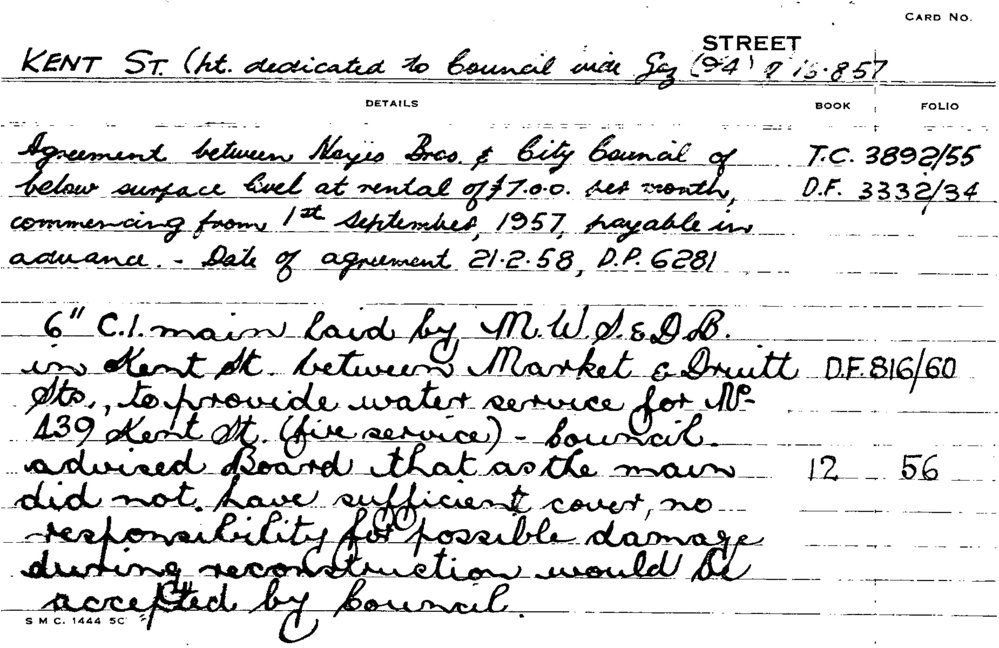 CARD NO.
STREET
KENT ST. (pt. dedicated to Council vide Gaz (94) 16.8.57
DETAILS BOOK FOLIO
Agreement between Noyes Bros. & City Council of T.C. 3892/55
below surface level at rental of £7.0.0. per month, D.F. 3332/34
commencing from 1st September, 1957, payable in
advance. - Date of agreement 21.2.58, D.P. 6281
6" C.I. main laid by M.W.S. & D.B.
in Kent St. between Market & Druitt D.F. 816/60
Sts., to provide water service for No.
439 Kent St. (fire service) - Council
advised Board that as the main 12 56
did not have sufficient cover, no
responsibility for possible damage
during reconstruction would be
accepted by Council.
S M C. 1444 5C